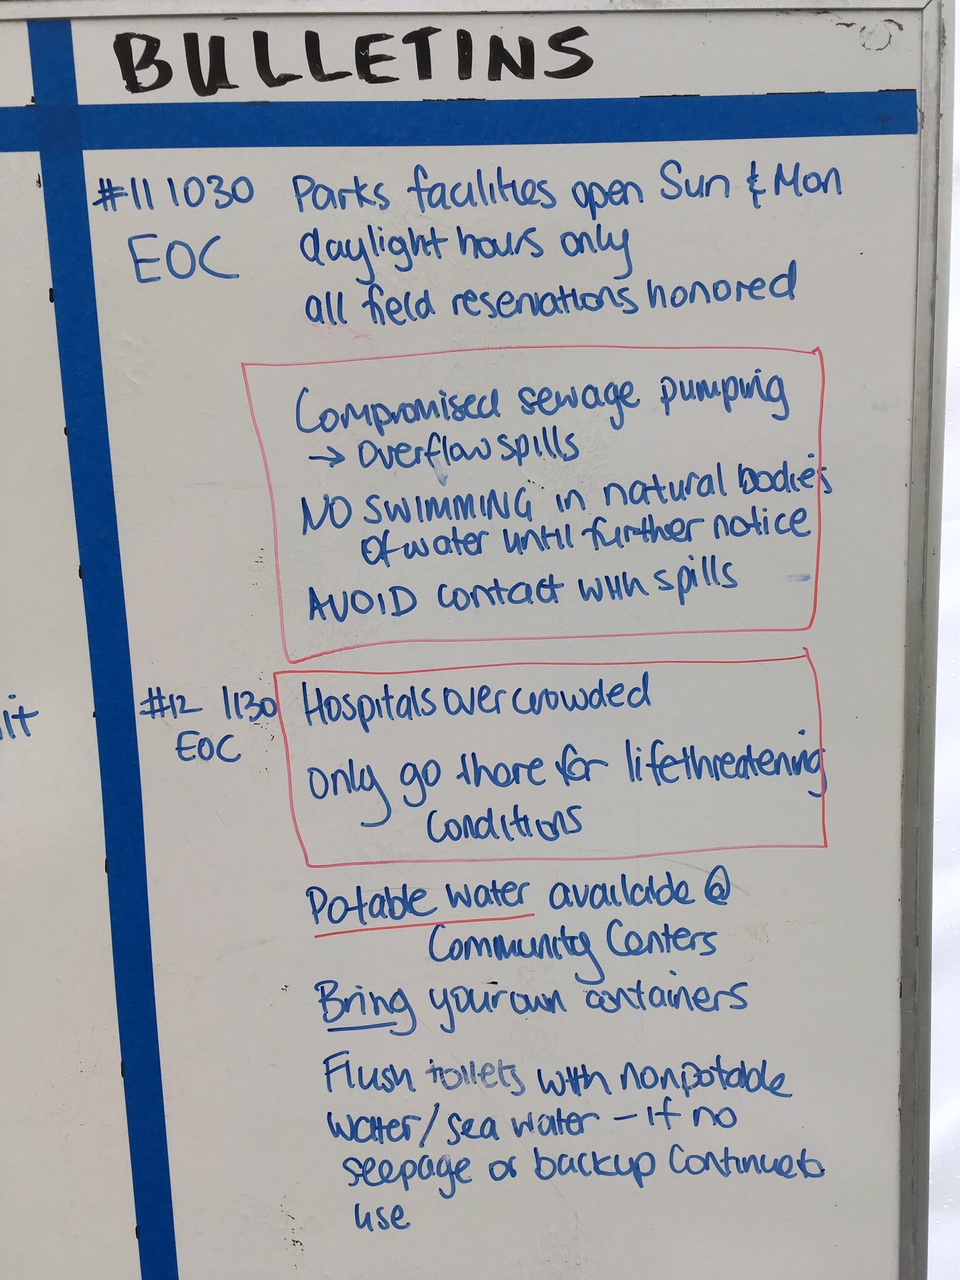 BULLETINS
#11 1030 Parks facilities open Sun & Mon
EOC daylight hours only
all field reservations honored
Compromised sewage pumping
→ Overflow spills
NO SWIMMING in natural bodies
of water until further notice
AVOID contact with spills
#12 1130 Hospitals overcrowded
EOC
only go there for lifethreatening
conditions
Potable water available @
Community Centers
Bring your own containers
Flush toilets with nonpotable
water/sea water - if no
seepage or backup continue to
use